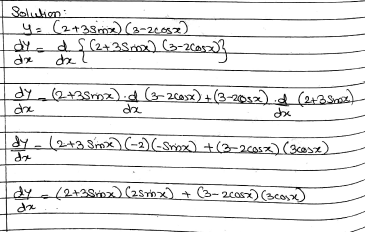 Solution:
y = (2+3Sinx)(3-2cosx)
dy/dx = d/dx {(2+3Sinx)(3-2cosx)}
dy/dx = (2+3Sinx)·d/dx (3-2cosx)+(3-2cosx)·d/dx (2+3Sinx)
dy/dx = (2+3Sinx)(-2)(-Sinx) + (3-2cosx)(3cosx)
dy/dx = (2+3Sinx)(2Sinx) + (3-2cosx)(3cosx)